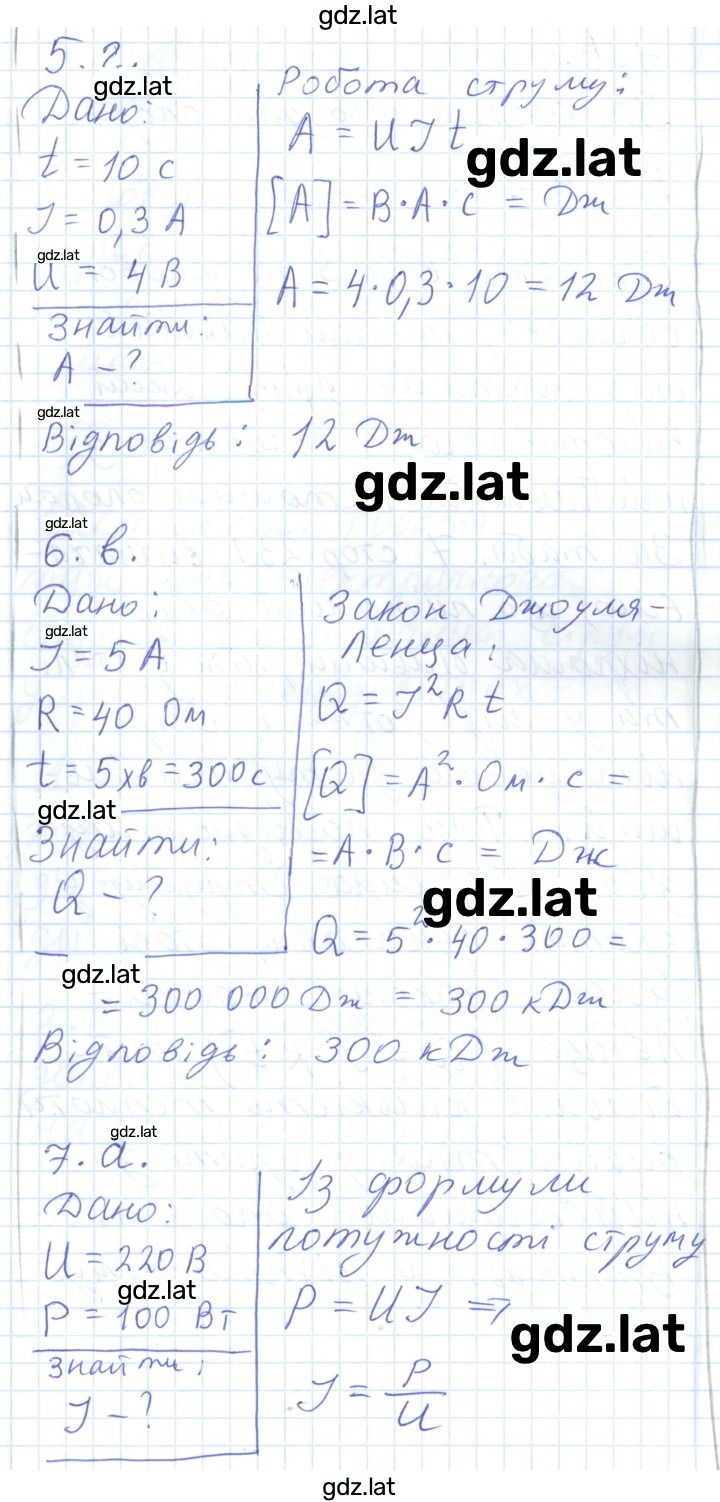 gdz.lat
5. г.
gdz.lat
Дано:
t = 10 с
I = 0,3 А
gdz.lat
U = 4 В
Знайти:
A - ?
Робота струму:
A = UIt
gdz.lat
[A] = В·А·с = Дж
A = 4·0,3·10 = 12 Дж
gdz.lat
Відповідь: 12 Дж
gdz.lat
gdz.lat
6. в.
Дано:
gdz.lat
I = 5 А
R = 40 Ом
t = 5хв = 300с
gdz.lat
Знайти:
Q - ?
Закон Джоуля-
Ленца:
Q = I²Rt
[Q] = А²·Ом·с =
= А·В·с = Дж
gdz.lat
Q = 5²·40·300 =
gdz.lat
= 300 000 Дж = 300 кДж
Відповідь: 300 кДж
gdz.lat
7. а.
Дано:
U = 220 В
gdz.lat
P = 100 Вт
Знайти:
I - ?
Із формули
потужності струму
P = UI ⇒
gdz.lat
I = P/U
gdz.lat